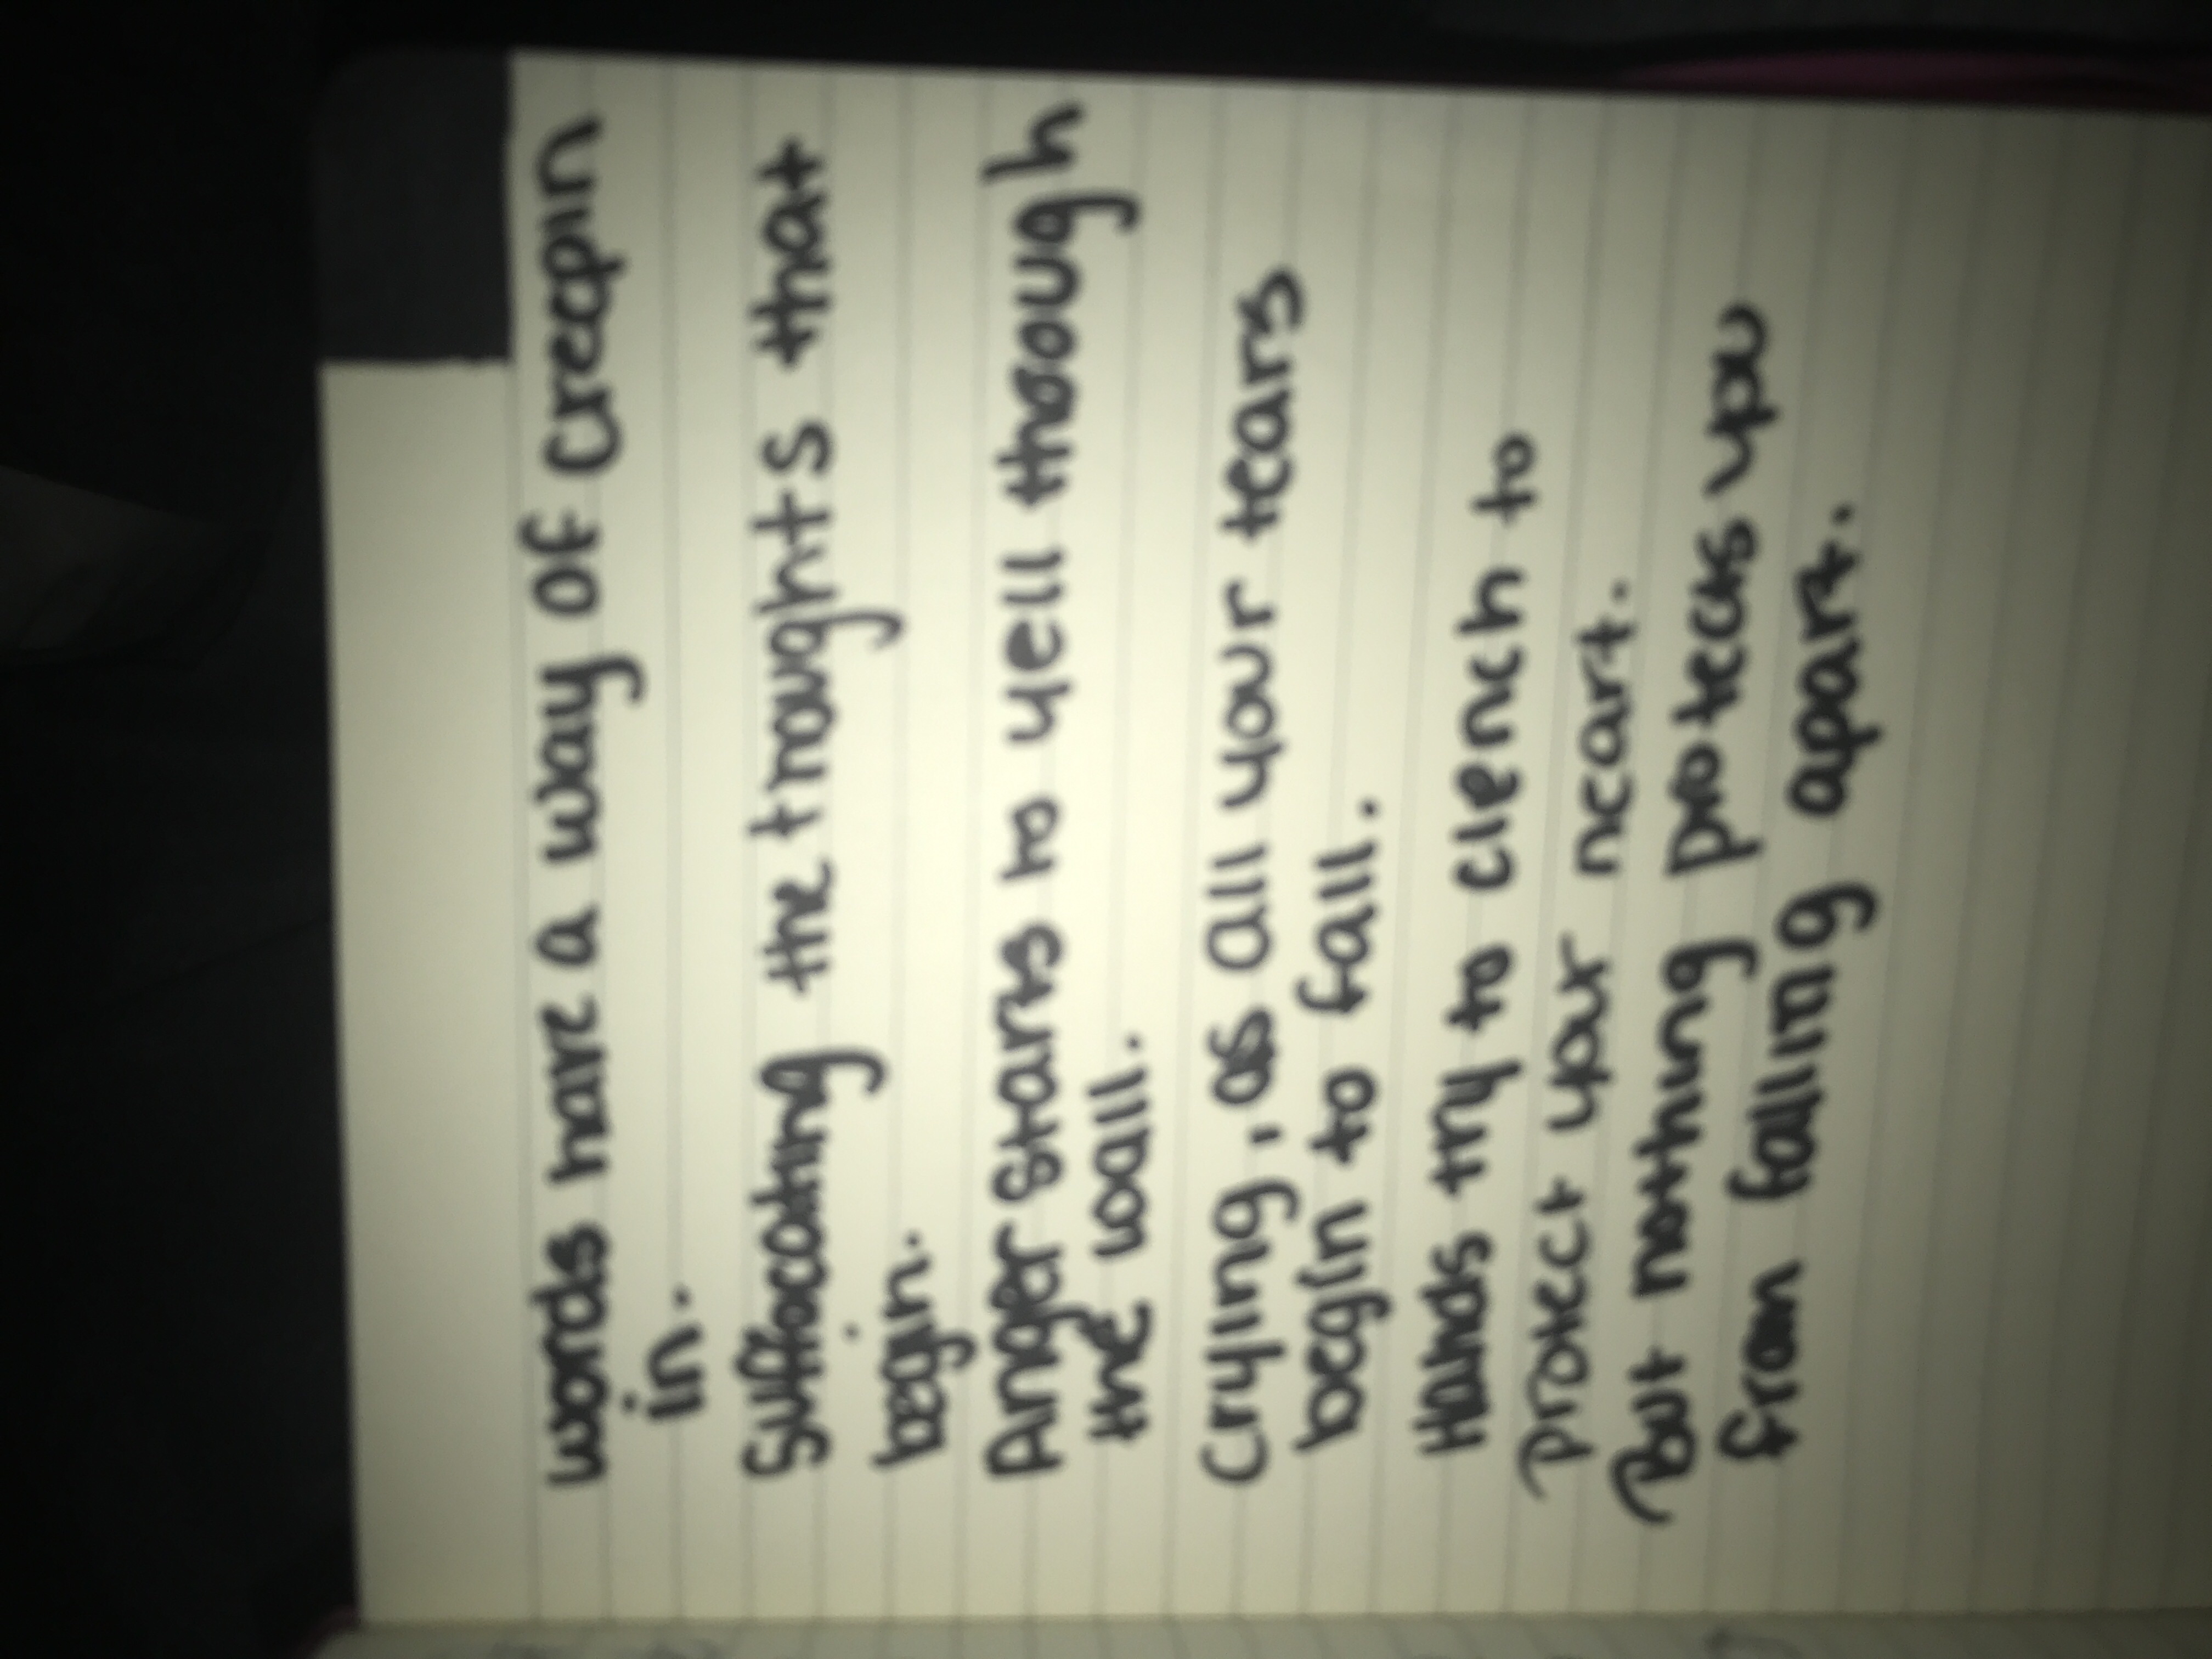 words have a way of creepin
in.
Suffocating the thoughts that
begin.
Anger starts to yell though
the wall.
Crying, as all your tears
begin to fall.
Hands try to clench to
protect your heart.
But nothing potects you
from falling apart.